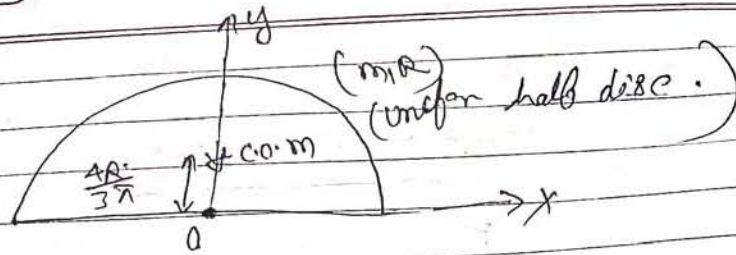 y
(m,R)
(uniform half disc.)
4R
3π
C.O.M
X
O